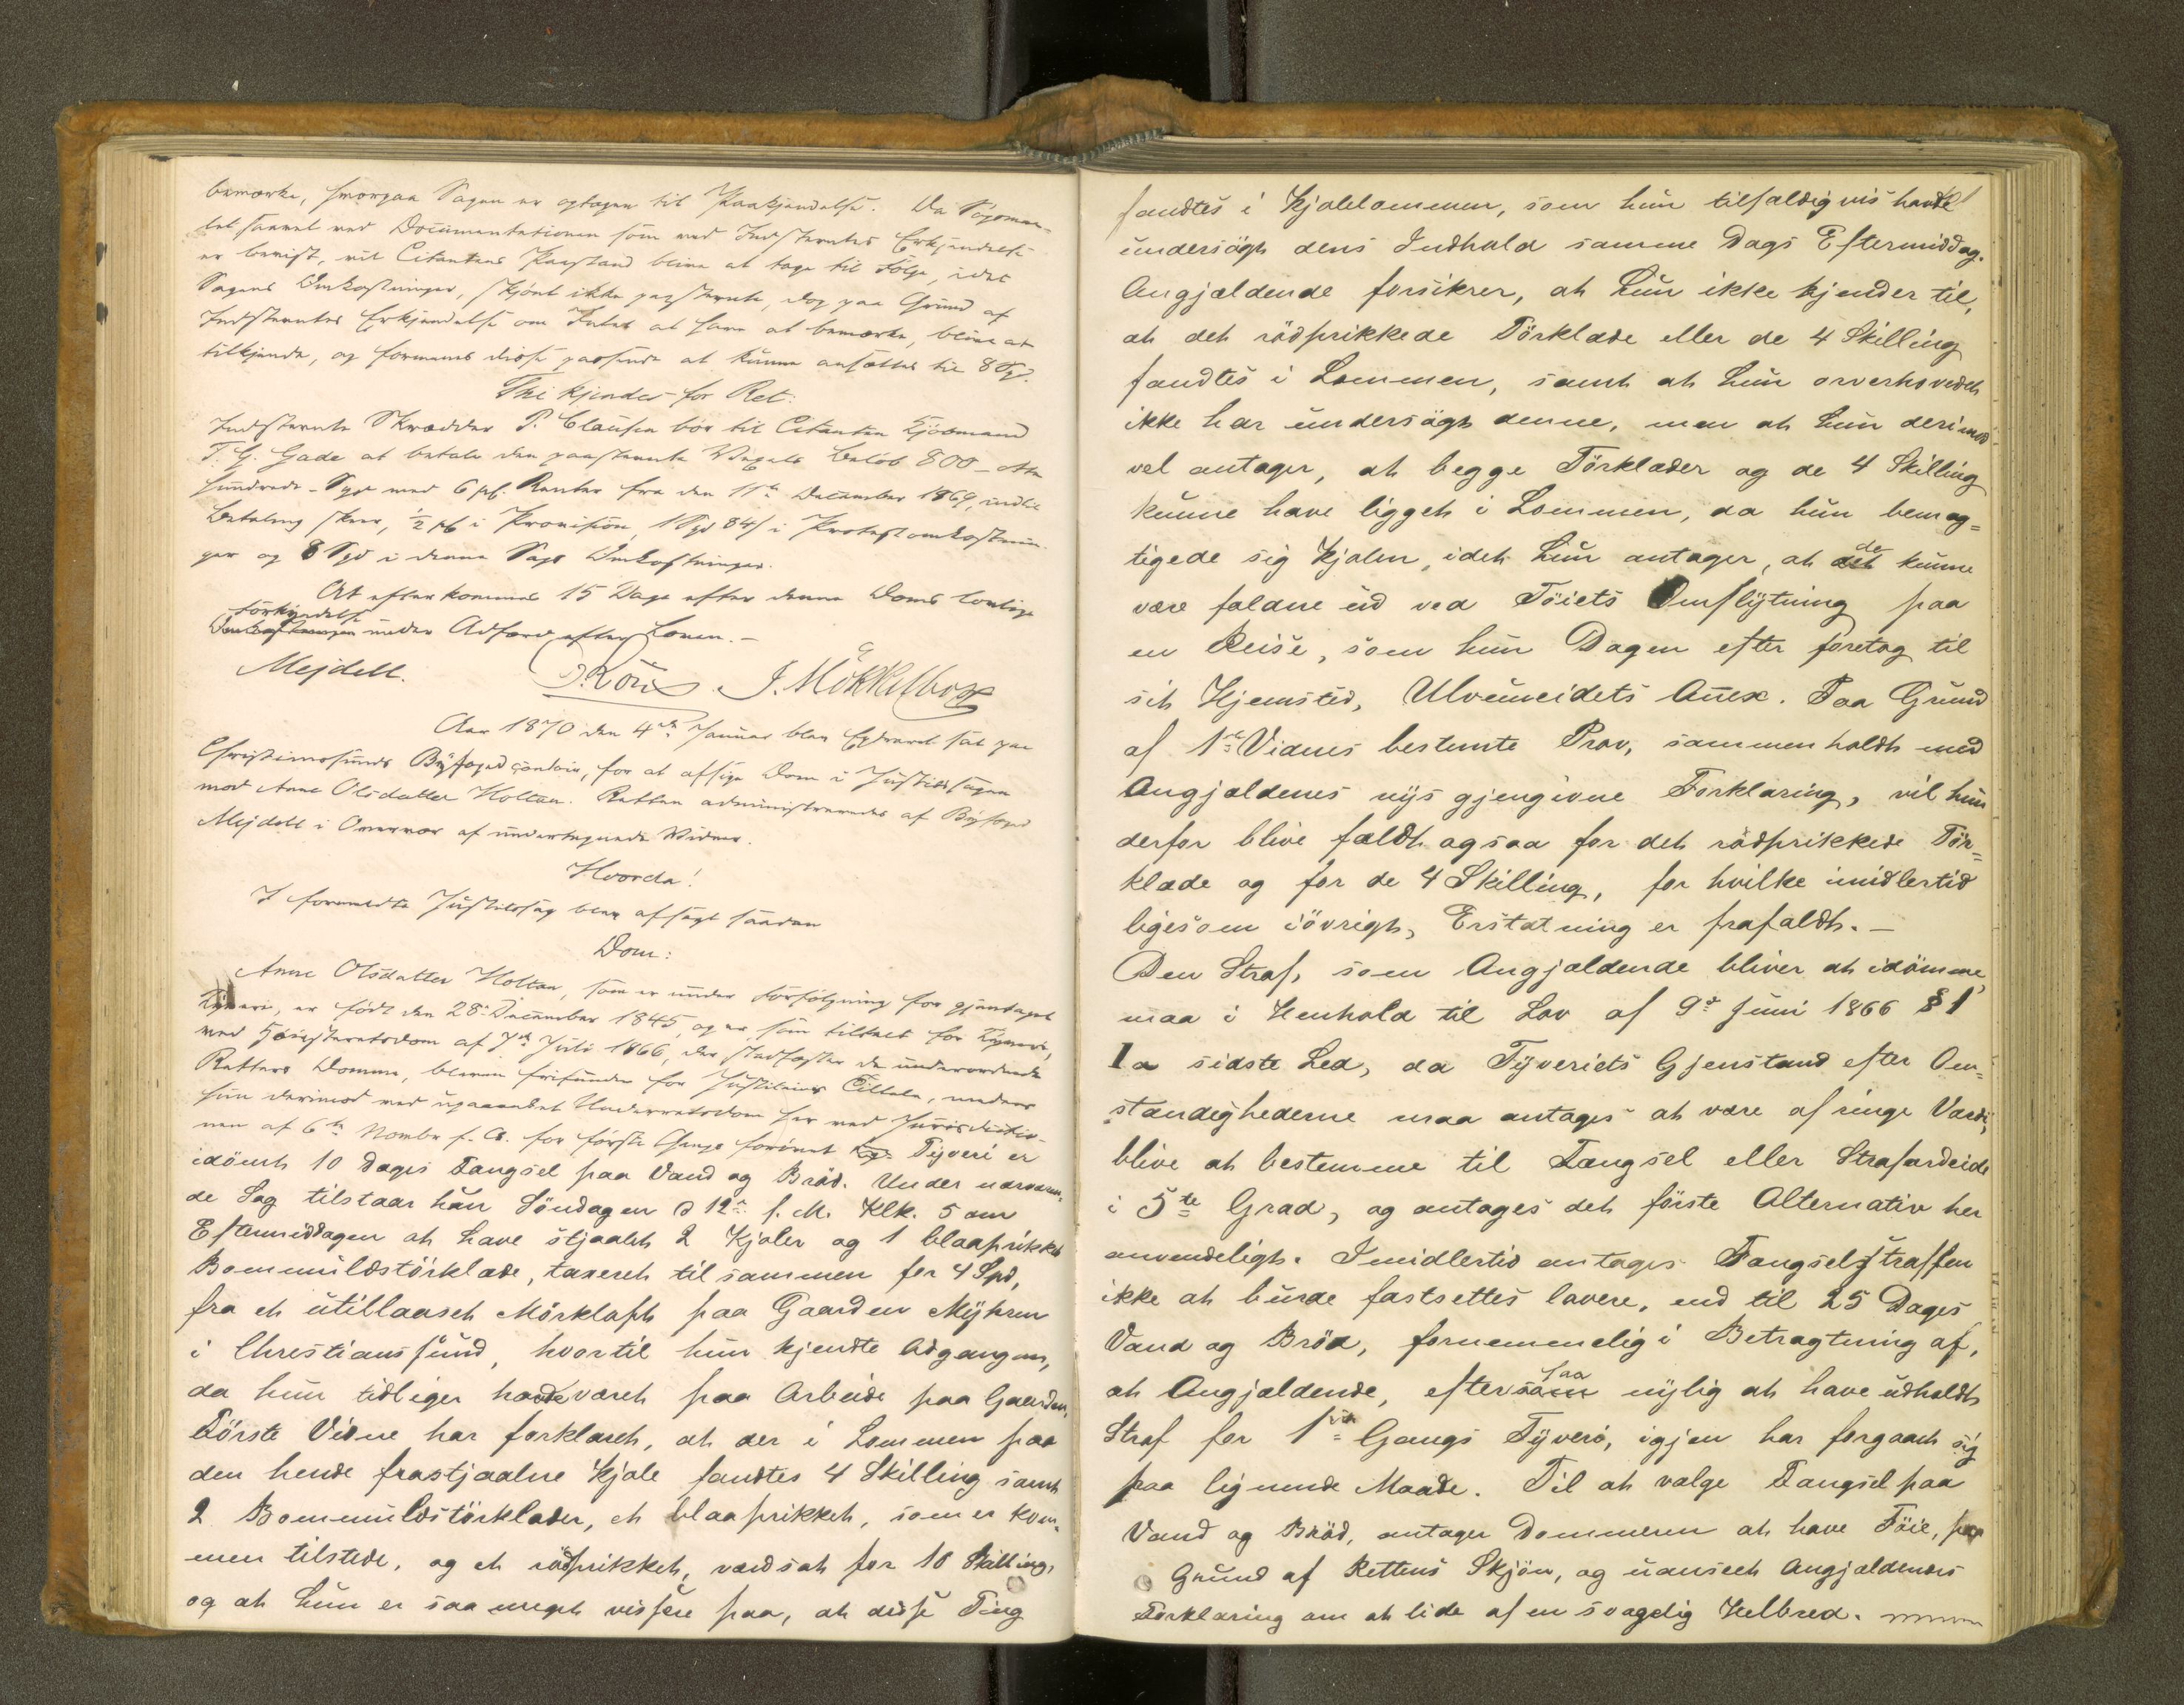 bemærke, hvorpaa Sagen er optagen til Paakjendelse. Da Søgsmaa-
let saavel ved Documentationen som ved Indstevntes Erkjendelse
er bevist, vil Citantens Paastand blive at tage til Følge, idet
Sagens Omkostninger, skjønt ikke paastevnte, dog paa Grund af
Indstevntes Erkjendelse om Intet at have at bemærke, blive at
tilkjende, og formenes disse passende at kunne ansættes til 8 Spd.
Thi kjendes for Ret:
Indstevnte Skrædder P. Clausen bør til Citanten Kjøbmand
T. G. Gade at betale den paastevnte Vexels Beløb 800 – otte
hundrede – Spd med 6 pCt. Renter fra den 11te December 1869, indtil
Betaling skeer, ½ pCt i Provision, 1 Spd 84 s i Protestomkostnin-
ger og 8 Spd i denne Sags Omkostninger.
At efterkommes 15 Dage efter denne Doms lovlige
Forkyndelse
Omkostninger under Adfærd efter Loven. –
Mejdell. J. Mökkelbost
Aar 1870 den 4de Januar blev Extraret sat paa
Christianssunds Byfogedcontoir, for at afsige Dom i Justitssagen
mod Anne Olsdatter Holten. Retten administreredes af Byfoged
Mejdell i Overvær af undertegnede Vidner.
Hvorda!
I foranmeldte Justitssag blev afsagt saadan
Dom:
Anne Olsdatter Holten, som er under Forfølgning for gjentaget
Tyveri, er født den 28de December 1845, og er, som tiltalt for Tyveri,
ved Höiesteretsdom af 7de Juli 1866, der stadfæster de underordnede
Retters Domme, bleven frifunden for Justitiens Tiltale, medens
hun derimod ved upaaanket Underretsdom her ved Jurisdictio-
nen af 6te Novbr f. A. for første Gang forøvet Tyveri er
idömt 10 Dages Fængsel paa Vand og Bröd. Under nærværen-
de Sag tilstaar hun Söndagen d 12te f. M. Klk. 5 om
Eftermiddagen at have stjaalet 2 Kjoler og 1 blaaprikket
Bommuldstörklæde, taxeret tilsammen for 4 Spd,
fra et utillaaset Mörkloft paa Gaarden Myhren
i Christianssund, hvortil hun kjendte Adgangen,
da hun tidligere havde været paa Arbeide paa Gaarden.
Förste Vidne har forklaret, at der i Lommen paa
den hende frastjaalne Kjole fandtes 4 Skilling samt
2 Bommuldstörklæder, et blaaprikket, som er kom-
men tilstede, og et rödprikket, værdsat for 10 Skilling,
og at hun er saa meget vissere paa, at disse Ting
fandtes i Kjolelommen, som hun tilfældigvis havde
undersögt dens Indhold samme Dags Eftermiddag.
Angjældende forsikrer, at hun ikke kjender til,
at det rödprikkede Törklæde eller de 4 Skilling
fandtes i Lommen, samt at hun overhovedet
ikke har undersögt denne, men at hun derimod
vel antager, at begge Törklæder og de 4 Skilling
kunne have ligget i Lommen, da hun bemæg-
tigede sig Kjolen, idet hun antager, at det de kunne
være faldne ud ved Töiets Omflytning paa
en Reise, som hun Dagen efter foretog til
sit Hjemsted, Ulvumeidets Anex. Paa Grund
af 1ste Vidnes bestemte Prov, sammenholdt med
Angjældenes nys gjengivne Forklaring, vil hun
derfor blive fældt ogsaa for det rödprikkede Tör-
klæde og for de 4 Skilling, for hvilke imidlertid
ligesom iövrigt, Erstatning er frafaldt. –
Den Straf, som Angjældende bliver at idömme,
maa i Henhold til Lov af 9de Juni 1866 § 1
1a sidste Led, da Tyveriets Gjenstand efter Om-
stændighederne maa antages at være af ringe Værdi,
blive at bestemme til Fængsel eller Strafarbeide
i 5te Grad, og antages det förste Alternativ her
anvendeligt. Imidlertid antages Fængselsstraffen
ikke at burde fastsettes lavere, end til 25 Dages
Vand og Bröd, fornemmelig i Betragtning af,
at Angjældende, efter saa nylig at have udholdt
Straf for 1ste Gangs Tyveri, igjen har forgaaet sig
paa lignende Maade. Til at vælge Fængsel paa
Vand og Bröd, antager Dommeren at have Föie, paa
Grund af Rettens Skjön, og uanseet Angjældendes
Forklaring om at lide af en svagelig Helbred.